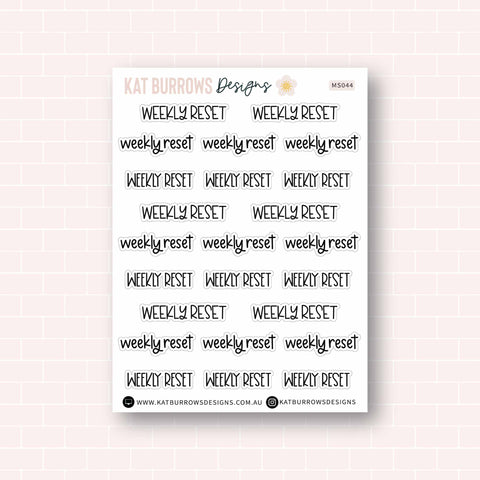 KAT BURROWS Designs MS044
WEEKLY RESET WEEKLY RESET
weekly reset weekly reset weekly reset
WEEKLY RESET WEEKLY RESET WEEKLY RESET
WEEKLY RESET WEEKLY RESET
weekly reset weekly reset weekly reset
WEEKLY RESET WEEKLY RESET WEEKLY RESET
WEEKLY RESET WEEKLY RESET
weekly reset weekly reset weekly reset
WEEKLY RESET WEEKLY RESET WEEKLY RESET
WWW.KATBURROWSDESIGNS.COM.AU KATBURROWSDESIGNS